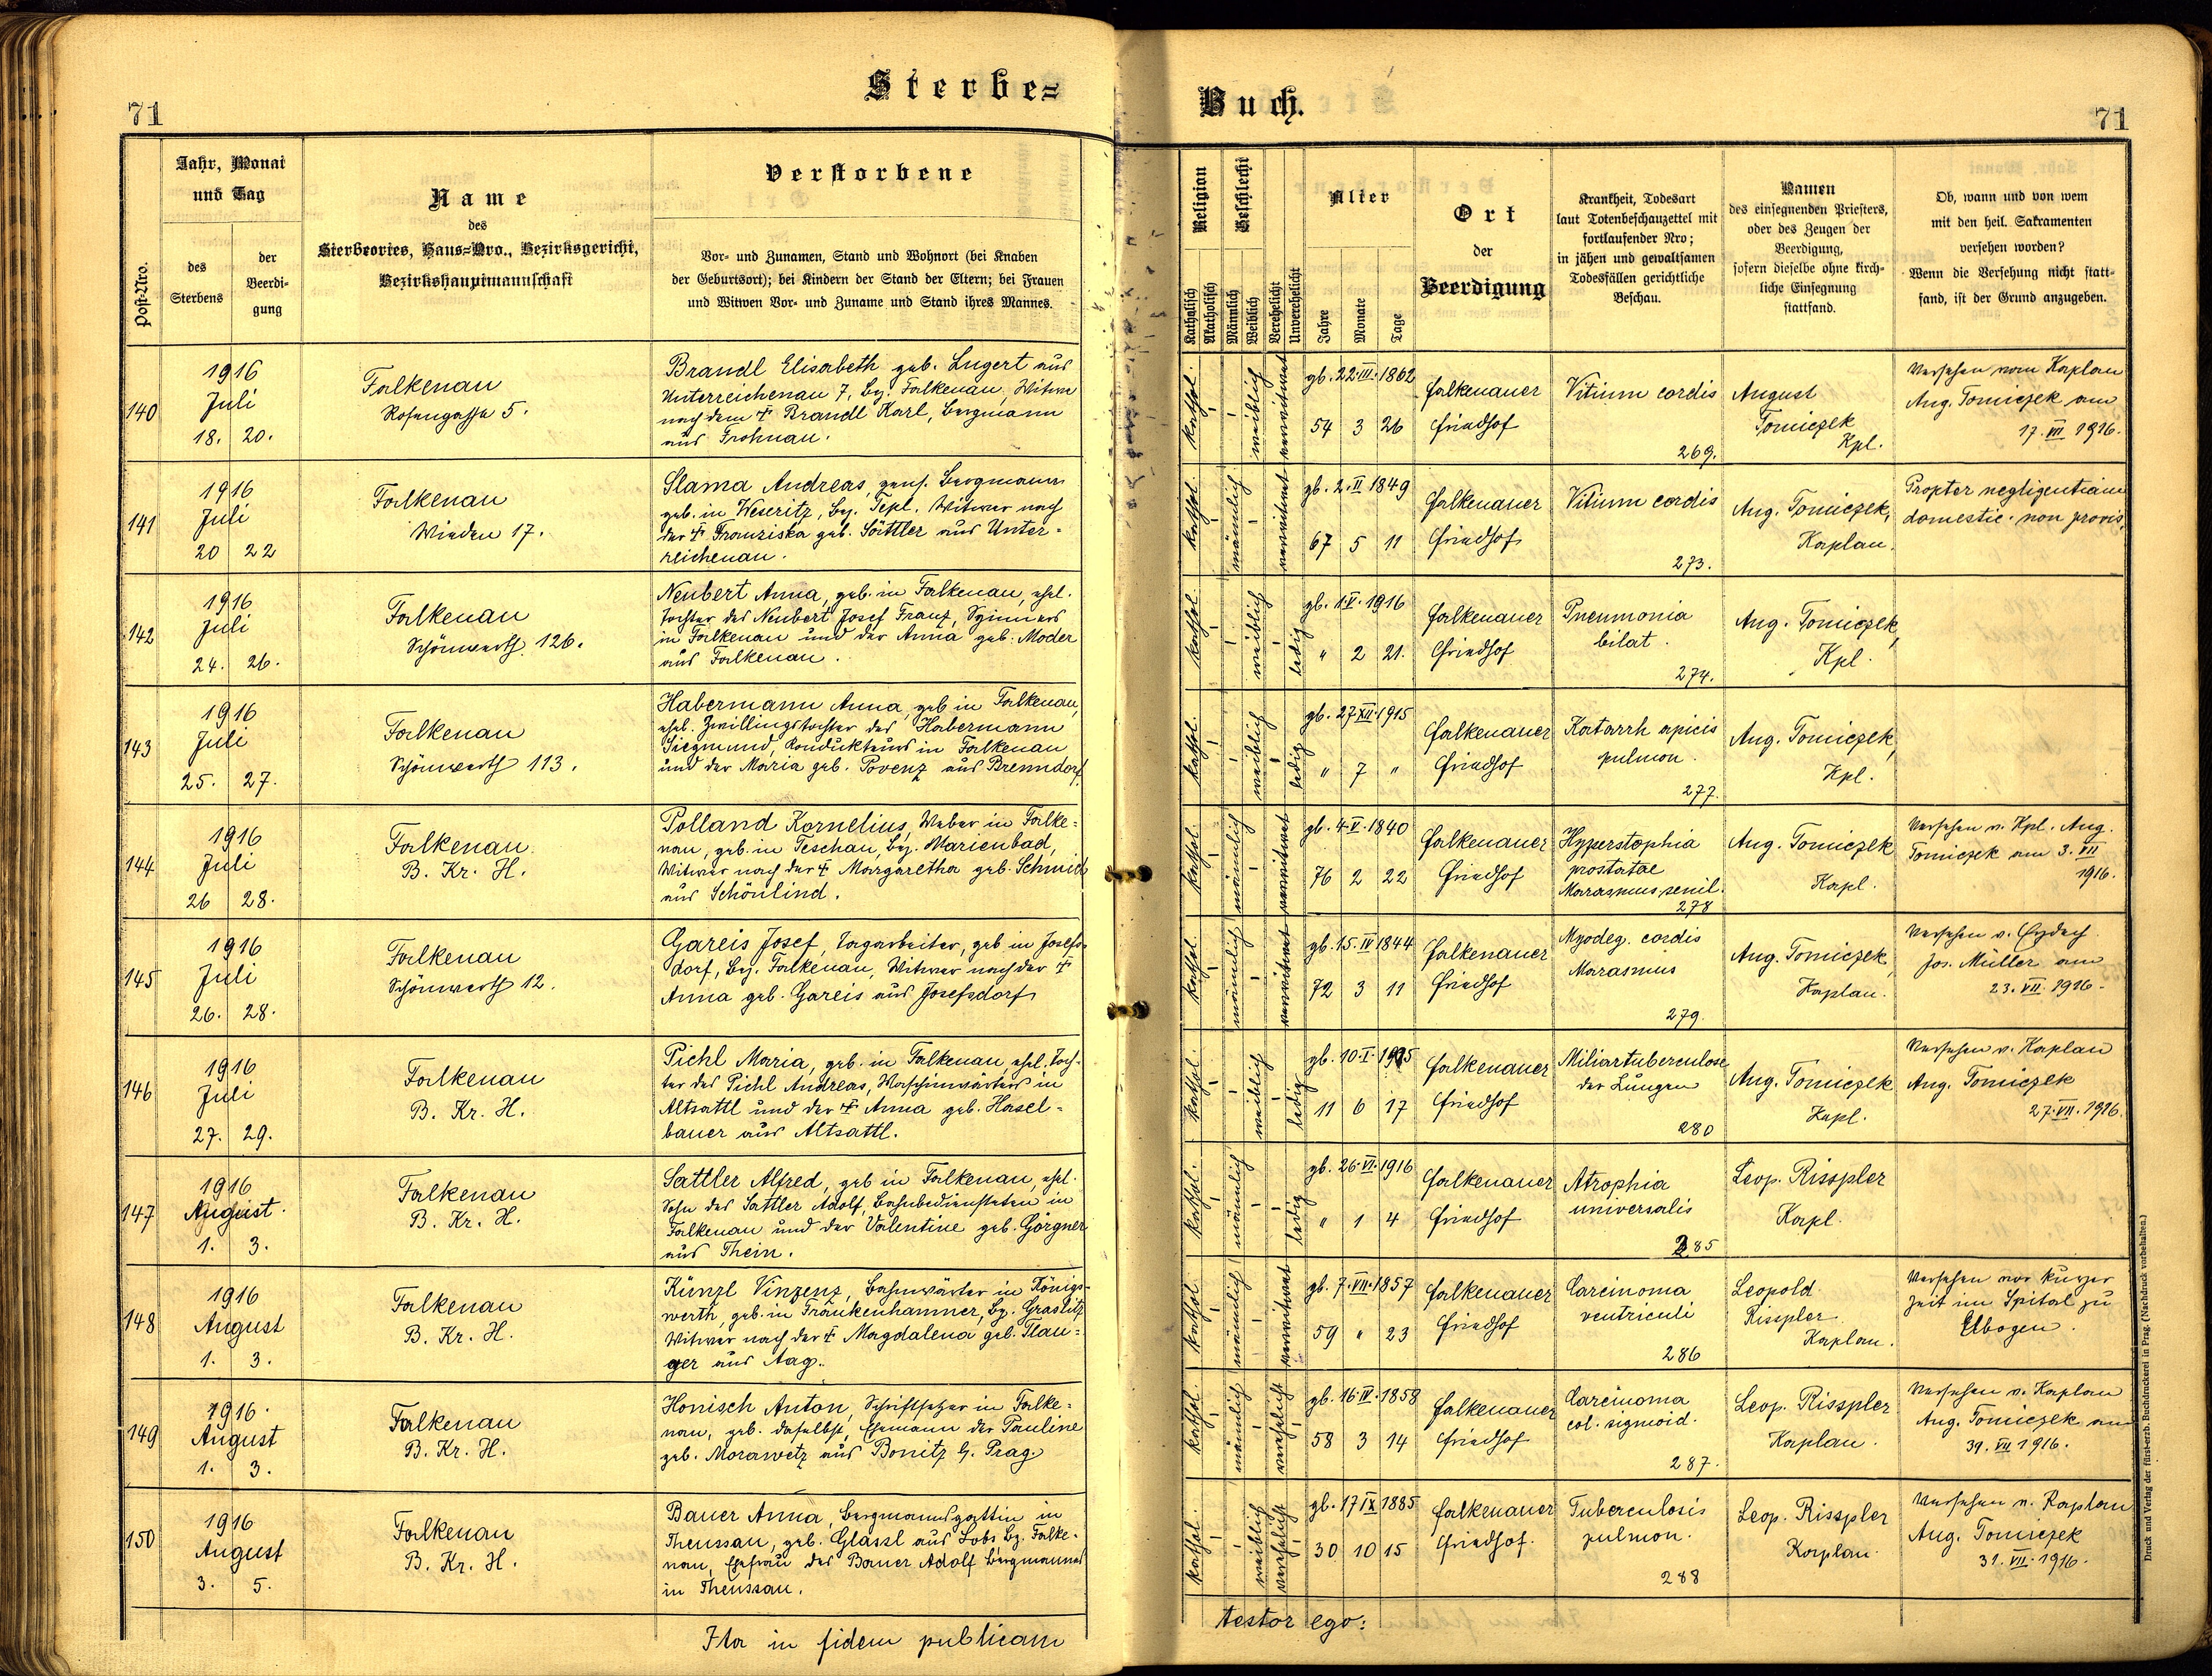 71
Sterbe=
Buch.
71
Post-Nro.
Jahr, Monat
und Tag
des
Sterbens
der
Beerdi-
gung
Name
des
Sterbeortes, Haus=Nro., Bezirksgericht,
Bezirkshauptmannschaft
Verstorbene
Vor- und Zunamen, Stand und Wohnort (bei Knaben
der Geburtsort); bei Kindern der Stand der Eltern; bei Frauen
und Witwen Vor- und Zuname und Stand ihres Mannes.
Religion
Katholisch
Akatholisch
Geschlecht
Männlich
Weiblich
Verehelicht
Unverehelicht
Alter
Jahre
Monate
Tage
Ort
der
Beerdigung
Krankheit, Todesart
laut Totenbeschauzettel mit
fortlaufender Nro;
in jähen und gewaltsamen
Todesfällen gerichtliche
Beschau.
Namen
des einsegnenden Priesters,
oder des Zeugen der
Beerdigung,
sofern dieselbe ohne kirch-
liche Einsegnung
stattfand.
Ob, wann und von wem
mit den heil. Sakramenten
versehen worden?
Wenn die Versehung nicht statt-
fand, ist der Grund anzugeben.
140
1916
Juli
18. 20.
Falkenau
Rosengasse 5.
Brandl Elisabeth geb. Lugert aus
Unterreichenau 7, Bz. Falkenau, Witwe
nach dem † Brandl Karl, Bergmann
aus Frohnau.
kathol.
weiblich
verwitwet
gb. 22.III.1862
54 3 26
Falkenauer
Friedhof
Vitium cordis
269.
August
Tomiczek
Kpl.
Versehen vom Kaplan
Aug. Tomiczek am
17.VII 1916.
141
1916
Juli
20 22
Falkenau
Wieden 17.
Slama Andreas, pens. Bergmann
geb. in Weseritz, Bz. Tepl. Witwer nach
der † Franziska geb. Sättler aus Unter=
reichenau.
kathol.
männlich
verwitwet
gb. 2.II 1849
67 5 11
Falkenauer
Friedhof
Vitium cordis
273.
Aug. Tomiczek,
Kaplan.
Propter negligentiam
domestic. non provis.
142
1916
Juli
24. 26.
Falkenau
Schönwerth 126.
Neubert Anna, geb. in Falkenau, ehel.
Tochter des Neubert Josef Franz, Spinners
in Falkenau und der Anna geb. Moder
aus Falkenau.
kathol.
weiblich
ledig
gb. 1.V.1916
" 2 21.
Falkenauer
Friedhof
Pneumonia
bilat.
274.
Aug. Tomiczek,
Kpl.
143
1916
Juli
25. 27.
Falkenau
Schönwerth 113.
Habermann Anna, geb in Falkenau,
ehel. Zwillingstochter des Habermann
Siegmund, Kondukteurs in Falkenau
und der Maria geb. Povenz aus Brenndorf.
kathol.
weiblich
ledig
gb. 27.XII.1915
" 7 "
Falkenauer
Friedhof
Katarrh apicis
pulmon.
277.
Aug. Tomiczek,
Kpl.
144
1916
Juli
26 28.
Falkenau
B. Kr. H.
Polland Kornelius, Weber in Falke=
nau, geb. in Teschau, Bz. Marienbad,
Witwer nach der † Margaretha geb. Schmid
aus Schönlind.
kathol.
männlich
verwitwet
gb. 4.V.1840
76 2 22
Falkenauer
Friedhof
Hyperstophia
prostatae
Marasmus senil.
278
Aug. Tomiczek
Kapl.
Versehen v. Kpl. Aug.
Tomiczek am 3.VII
1916.
145
1916
Juli
26. 28.
Falkenau
Schönwerth 12.
Gareis Josef, Tagarbeiter, geb in Josefs-
dorf, Bz. Falkenau, Witwer nach der †
Anna geb. Gareis aus Josefsdorf
kathol.
männlich
verwitwet
gb. 15.IV 1844
72 3 11
Falkenauer
Friedhof
Myodeg. cordis
Marasmus
279.
Aug. Tomiczek,
Kaplan.
Versehen v. Erzdech.
Jos. Müller am
23.VII.1916.
146
1916
Juli
27. 29.
Falkenau
B. Kr. H.
Pichl Maria, geb. in Falkenau, ehel. Toch-
ter des Pichl Andreas, Maschinwärters in
Altsattl und der † Anna geb. Hasel-
bauer aus Altsattl.
kathol.
weiblich
ledig
gb. 10.I.1905
11 6 17
Falkenauer
Friedhof
Miliartuberculose
der Lungen
280
Aug. Tomiczek
Kapl.
Versehen v. Kaplan
Aug. Tomiczek
27.VII.1916.
147
1916
August.
1. 3.
Falkenau
B. Kr. H.
Sattler Alfred, geb in Falkenau, ehel.
Sohn des Sattler Adolf, Bahnbediensteten in
Falkenau und der Valentine geb. Görgner
aus Thein.
kathol.
männlich
ledig
gb. 26.VI.1916
" 1 4
Falkenauer
Friedhof
Atrophia
universalis
285
Leop. Risspler
Kapl.
148
1916
August
1. 3.
Falkenau
B. Kr. H.
Künzl Vinzenz, Bahnwärter in Königs-
werth, geb. in Frankenhammer, Bz. Graslitz
Witwer nach der † Magdalena geb. Plau=
ger aus Aag.
kathol.
männlich
verwitwet
gb. 7.VII.1857
59 " 23
Falkenauer
Friedhof
Carcinoma
ventriculi
286
Leopold
Risspler
Kaplan.
Versehen vor kurzer
Zeit im Spital zu
Elbogen.
149
1916.
August
1. 3.
Falkenau
B. Kr. H.
Honisch Anton, Schriftsetzer in Falke=
nau, geb. daselbst, Ehemann der Pauline
geb. Morawetz aus Bonitz b. Prag.
kathol.
männlich
verehelicht
gb. 16.IV.1858
58 3 14
Falkenauer
Friedhof
Carcinoma
col. sigmoid.
287.
Leop. Risspler
Kaplan.
Versehen v. Kaplan
Aug. Tomiczek am
31.VII 1916.
150
1916
August
3. 5.
Falkenau
B. Kr. H.
Bauer Anna, Bergmannsgattin in
Theussau, geb. Glassl aus Lobs, Bz. Falke-
nau, Ehefrau des Bauer Adolf Bergmannes
in Theussau.
kathol.
weiblich
verehelicht
gb. 17.IX 1885
30 10 15
Falkenauer
Friedhof.
Tuberculosis
pulmon.
288
Leop. Risspler
Kaplan.
Versehen v. Kaplan
Aug. Tomiczek
31.VII.1916.
Ita in fidem publicam
testor ego:
Druck und Verlag der fürst-erzb. Buchdruckerei in Prag. (Nachdruck vorbehalten.)